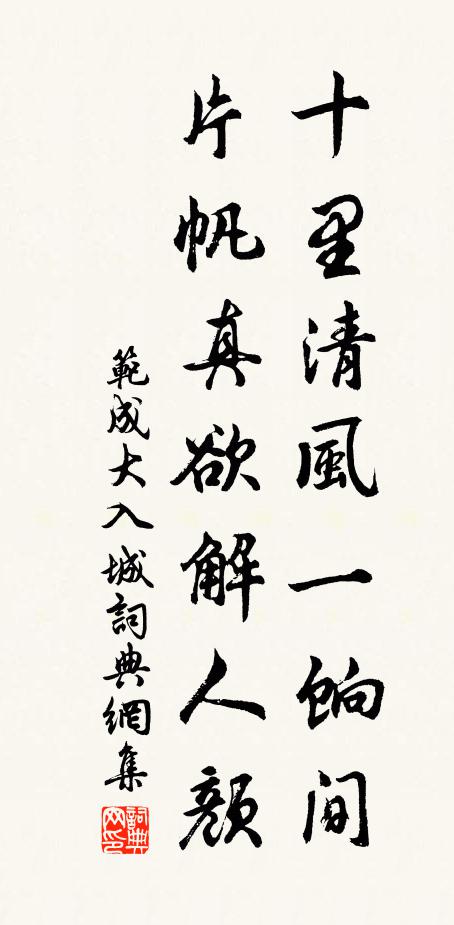 十里清風一餉间
片帆真欲解人顏
範成大入城詞典網集
詞典网印